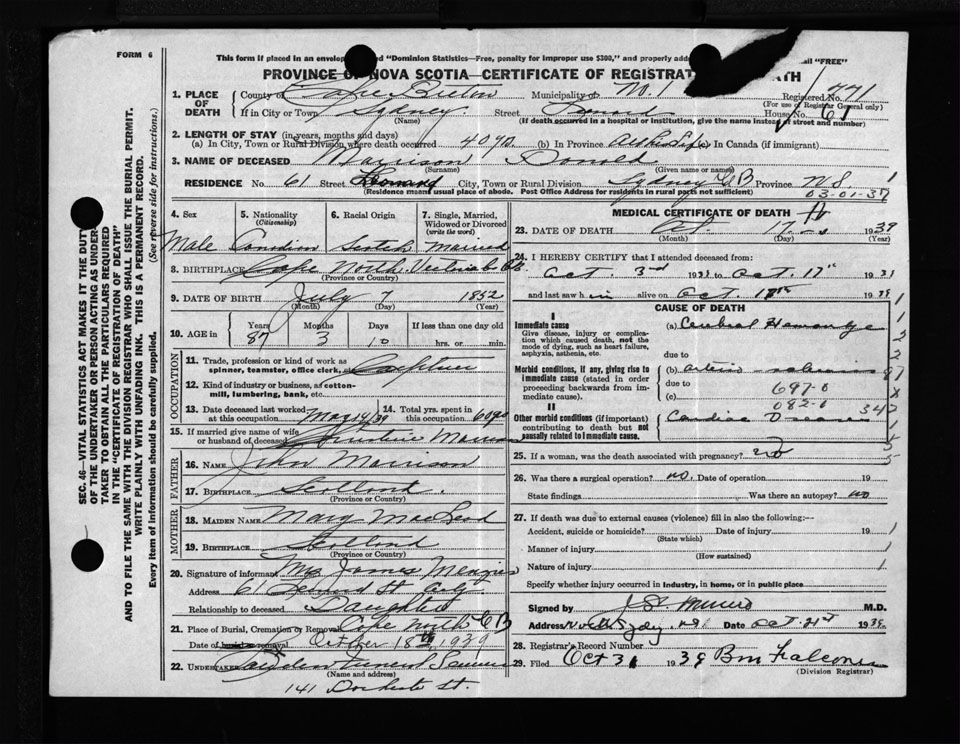 FORM 6
This form if placed in an envelop d "Dominion Statistics—Free, penalty for improper use $300," and properly addre ail "FREE"
PROVINCE OF NOVA SCOTIA—CERTIFICATE OF REGISTRAT DEATH
1. PLACE OF DEATH County of Cape Breton Municipality of No. 1 Registered No. 771
(For use of Registrar General only)
If in City or Town Sydney Street House No. 61
(Name) (If death occurred in a hospital or institution, give the name instead of street and number)
2. LENGTH OF STAY (in years, months and days)
(a) In City, Town or Rural Division where death occurred 40 yo. (b) In Province All his Life (c) In Canada (if immigrant)
3. NAME OF DECEASED Morrison Donald
(Surname) (Given name or names)
RESIDENCE No. 61 Street City, Town or Rural Division Sydney CB Province N.S. 1
(Residence means usual place of abode. Post Office Address for residents in rural parts not sufficient)
03-01-37
4. Sex 5. Nationality (Citizenship) 6. Racial Origin 7. Single, Married, Widowed or Divorced (write the word)
Male Canadian Scotch Married
8. BIRTHPLACE Cape North Victoria Co.
(Province or Country)
9. DATE OF BIRTH July 7 1852
(Month) (Day) (Year)
10. AGE in Years Months Days If less than one day old
87 3 10 hrs. or min.
OCCUPATION
11. Trade, profession or kind of work as spinner, teamster, office clerk, etc. Carpenter
12. Kind of industry or business, as cotton-mill, lumbering, bank, etc.
13. Date deceased last worked at this occupation May 14/39 14. Total yrs. spent in this occupation 60 yo
15. If married give name of wife or husband of deceased Christine Morrison
FATHER
16. NAME John Morrison
17. BIRTHPLACE Scotland.
(Province or Country)
MOTHER
18. MAIDEN NAME Mary MacLeod
19. BIRTHPLACE Scotland
(Province or Country)
20. Signature of informant Mrs James Menzies
Address 61 St
Relationship to deceased Daughter
21. Place of Burial, Cremation or Removal Cape North CB
Date of burial or removal October 18th 1939
22. UNDERTAKER
(Name and address)
141 Dorchester St.
MEDICAL CERTIFICATE OF DEATH
23. DATE OF DEATH Oct. 17 1939
(Month) (Day) (Year)
24. I HEREBY CERTIFY that I attended deceased from:
Oct 3rd 1931 to Oct. 17th 1931
and last saw him alive on Oct. 17th 1939
CAUSE OF DEATH
I
Immediate cause
Give disease, injury or complication which caused death, not the mode of dying, such as heart failure, asphyxia, asthenia, etc.
(a) Cerebral Hemorrhage
due to
Morbid conditions, if any, giving rise to immediate cause (stated in order proceeding backwards from immediate cause).
(b) Arterio sclerosis
due to 697-0
(c) 082-0 347
II
Other morbid conditions (if important) contributing to death but not causally related to immediate cause.
Cardiac
25. If a woman, was the death associated with pregnancy? no
26. Was there a surgical operation? no. Date of operation 19
State findings Was there an autopsy? no
27. If death was due to external causes (violence) fill in also the following:—
Accident, suicide or homicide? Date of injury 19
(State which)
Manner of injury
(How sustained)
Nature of injury
Specify whether injury occurred in industry, in home, or in public place
Signed by M.D.
Address Date Oct. 21st 1939.
28. Registrar's Record Number
29. Filed Oct 31 1939 Falconer
(Division Registrar)
SEC. 46—VITAL STATISTICS ACT MAKES IT THE DUTY OF THE UNDERTAKER OR PERSON ACTING AS UNDERTAKER TO OBTAIN ALL THE PARTICULARS REQUIRED IN THE "CERTIFICATE OF REGISTRATION OF DEATH" AND TO FILE THE SAME WITH THE DIVISION REGISTRAR WHO SHALL ISSUE THE BURIAL PERMIT.
WRITE PLAINLY WITH UNFADING INK. THIS IS A PERMANENT RECORD.
Every item of information should be carefully supplied. (See reverse side for instructions.)